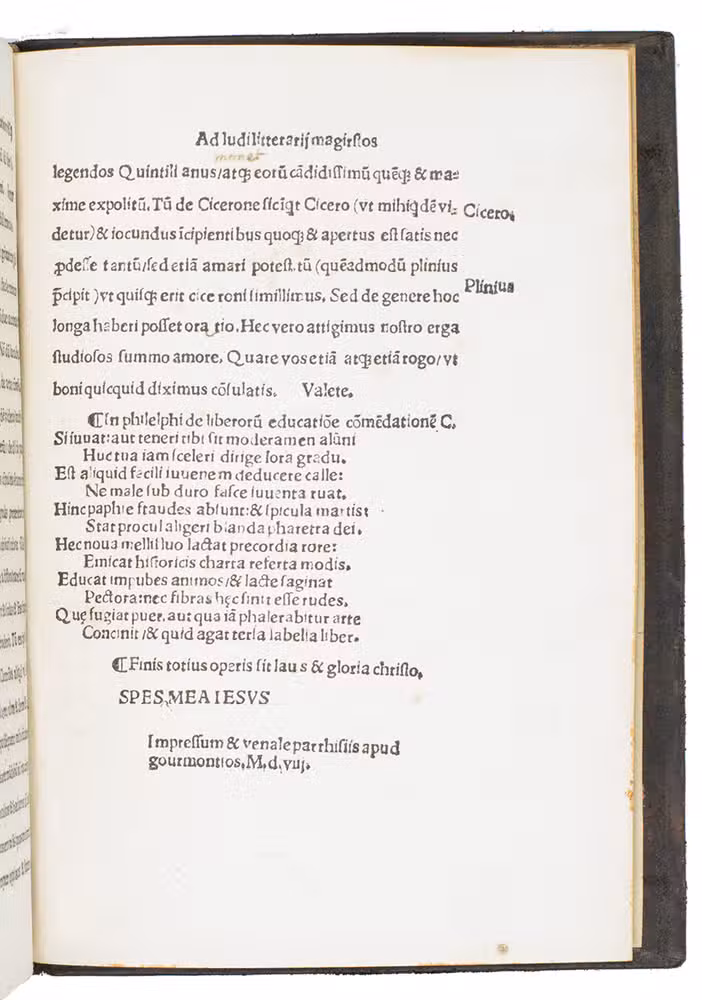 Ad ludi litterarij magirstos
monet
legendos Quintili anus/atqꝫ eorū cādidissimū quēqꝫ & ma⸗
xime expolitū. Tū de Cicerone sicīqt Cicero (vt mihi qdē vi⸗
Cicero.
detur) & iocundus īcipientibus quoqꝫ & apertus est satis nec
ꝓdesse tantū/sed etiā amari potest. tū (quēadmodū plinius
Plinius
p̄cipit ) vt quisqꝫ erit cice roni simillimus. Sed de genere hoc
longa haberi posset ora tio. Hec vero attigimus nostro erga
studiosos summo amore. Quare vos etiā atqꝫ etiā rogo/vt
boni quicquid diximus cōsulatis. Valete.
¶In philelphi de liberorū educatiōe cōmēdationē C.
Si iuuat: aut teneri tibi sit moderamen alūni
Huc tua iam sceleri dirige lora gradu.
Est aliquid facili iuuenem deducere calle:
Ne male sub duro fasce iuuenta ruat.
Hinc paphie fraudes absunt: & spicula martis:
Stat procul aligeri blanda pharetra dei.
Hec noua mellifluo lactat precordia rore:
Emicat historicis charta referta modis.
Educat impubes animos/& lacte saginat
Pectora: nec fibras hęc sinit esse rudes.
Quę fugiat puer. aut qua iā phalerabitur arte
Concinit /& quid agat tersa labella liber.
¶Finis totius operis sit lau s & gloria christo.
SPES.MEA IESVS
Impressum & venale parrhisiis apud
gourmontios.M.d.vij.